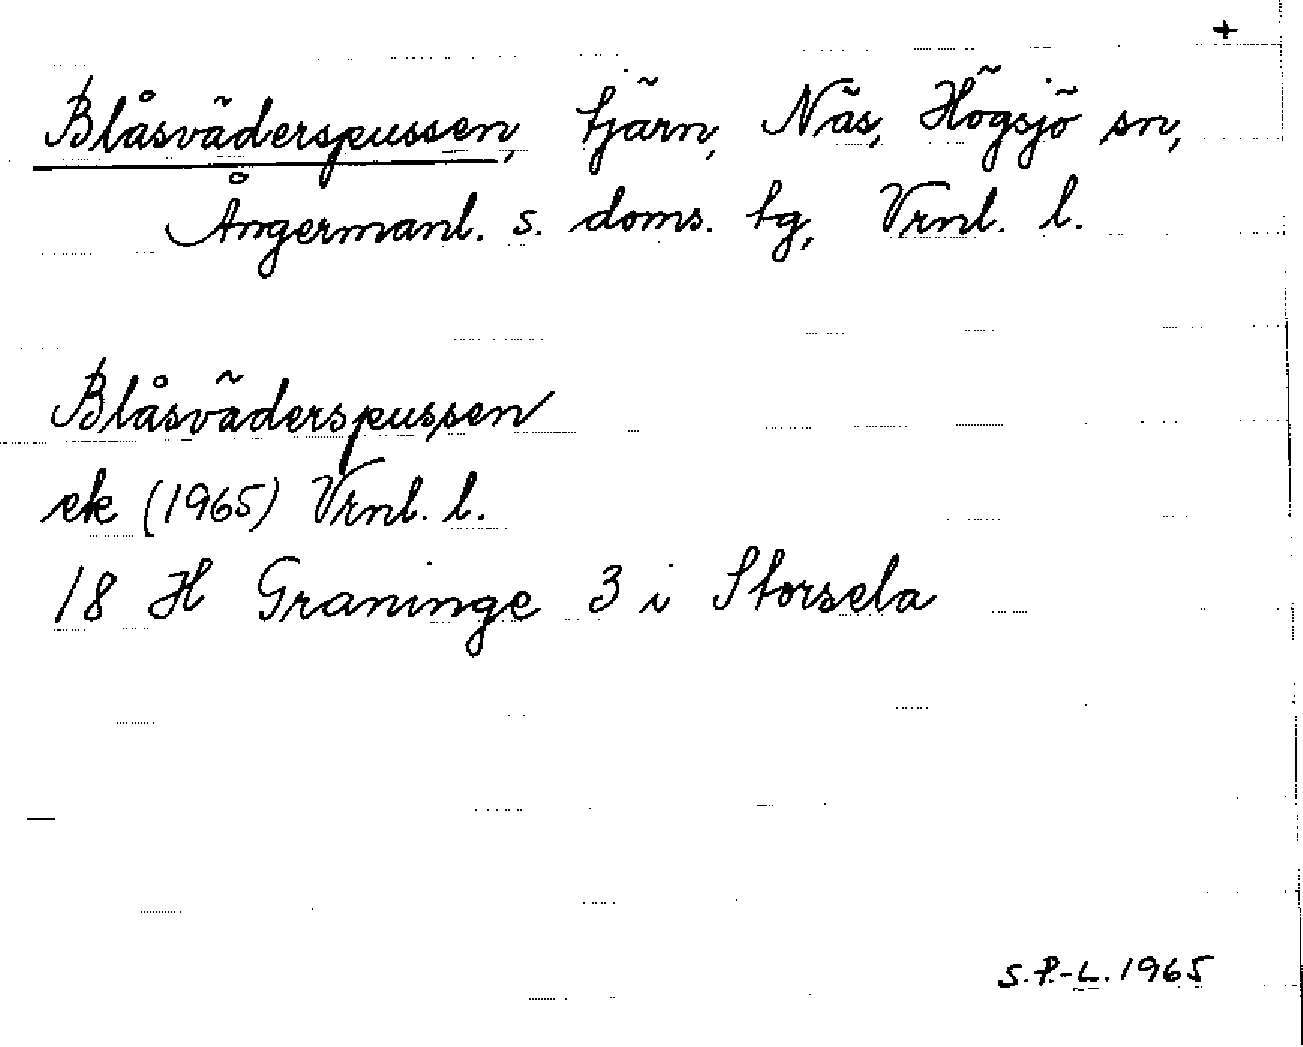 +
Blåsväderspussen, tjärn, Näs, Högsjö sn,
Ångermanl. s. doms. tg, Vrnl. l.
Blåsväderspussen
ek (1965) Vrnl. l.
18 H Graninge 3 i Storsela
S.P.-L. 1965